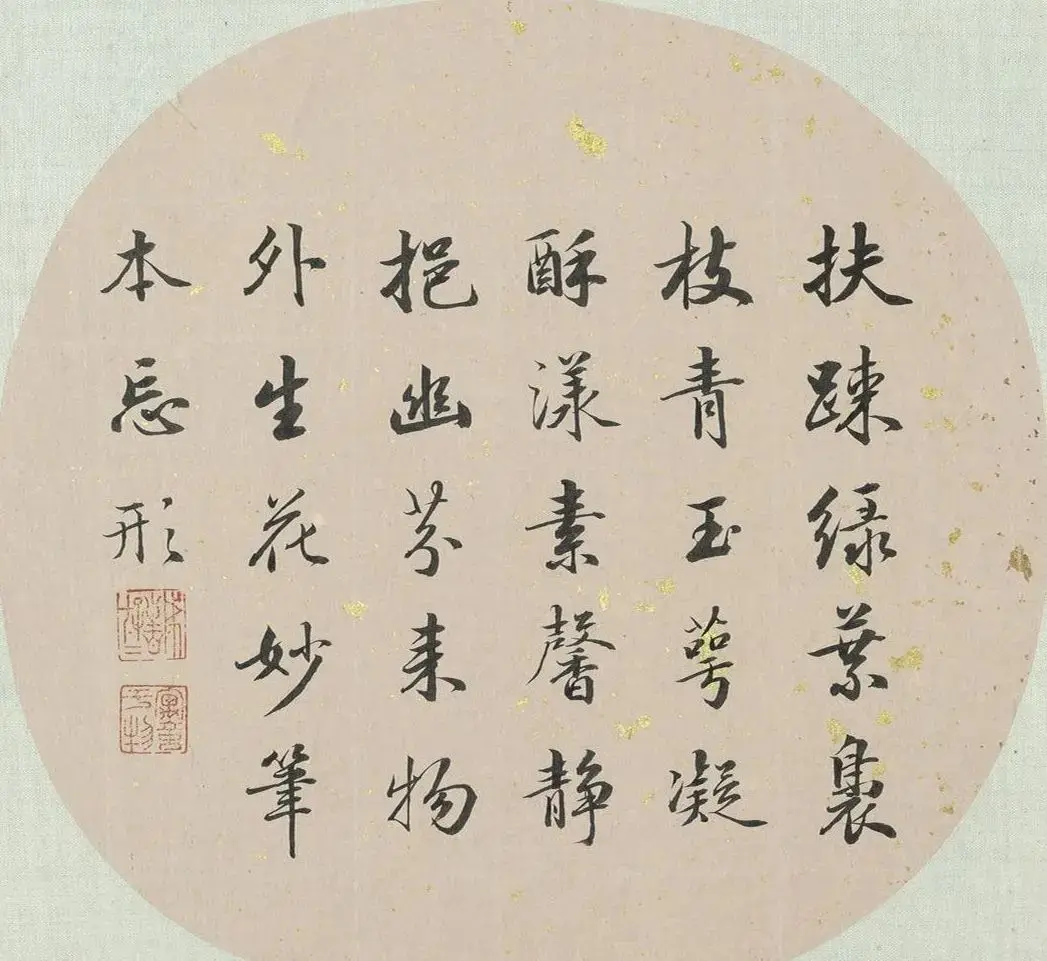 扶踈緑葉裊
枝青玉萼凝
酥漾素馨静
挹幽芬来物
外生花妙筆
本忘形